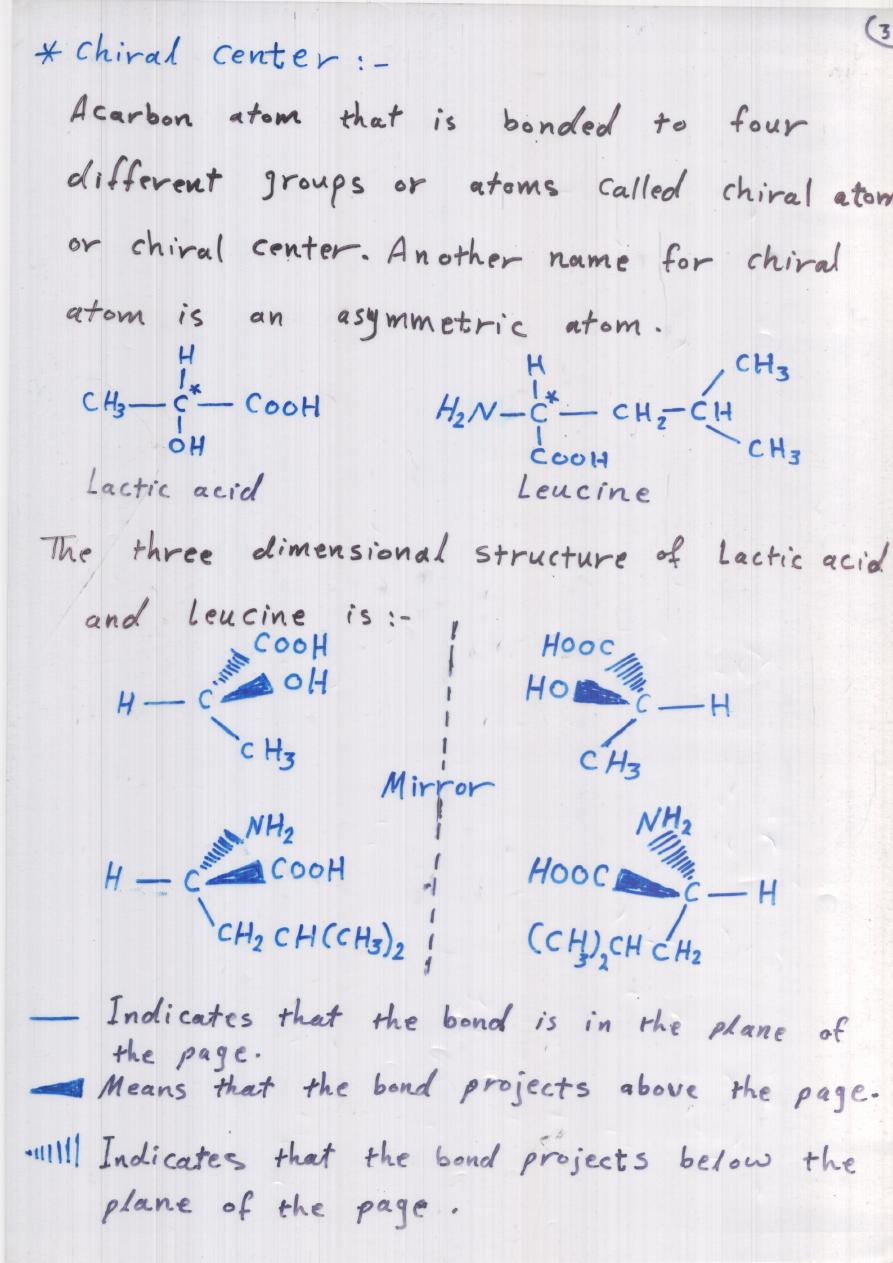 (3
* Chiral Center :-
A carbon atom that is bonded to four
different groups or atoms called chiral atom
or chiral center. Another name for chiral
atom is an asymmetric atom.
H H CH3
CH3—C*—COOH H2N—C*—CH2—CH
OH COOH CH3
Lactic acid Leucine
The three dimensional structure of Lactic acid
and Leucine is :-
COOH HOOC
OH HO
H—C C—H
CH3 CH3
Mirror
NH2 NH2
H—C COOH HOOC C—H
CH2CH(CH3)2 (CH3)2CHCH2
Indicates that the bond is in the plane of
the page.
Means that the bond projects above the page.
Indicates that the bond projects below the
plane of the page.